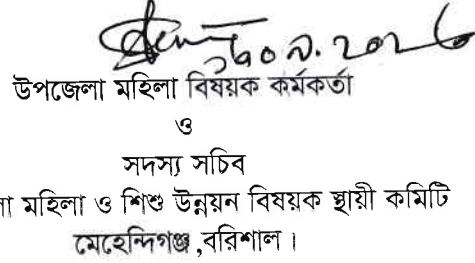 উপজেলা মহিলা বিষয়ক কর্মকর্তা
ও
সদস্য সচিব
া মহিলা ও শিশু উন্নয়ন বিষয়ক স্থায়ী কমিটি
মেহেন্দিগঞ্জ,বরিশাল।